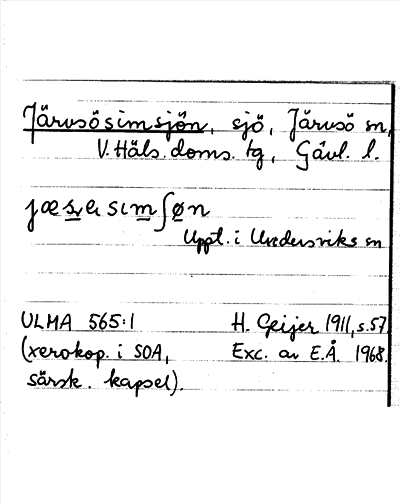 Järvsösimsjön, sjö, Järvsö sn,
V. Häls. doms. tg, Gävl. l.
Uppt. i Undersviks sn
ULMA 565:1 H. Geijer 1911, s. 57
(xerokop. i SOA, Exc. av E.Å. 1968.
särsk. kapsel).